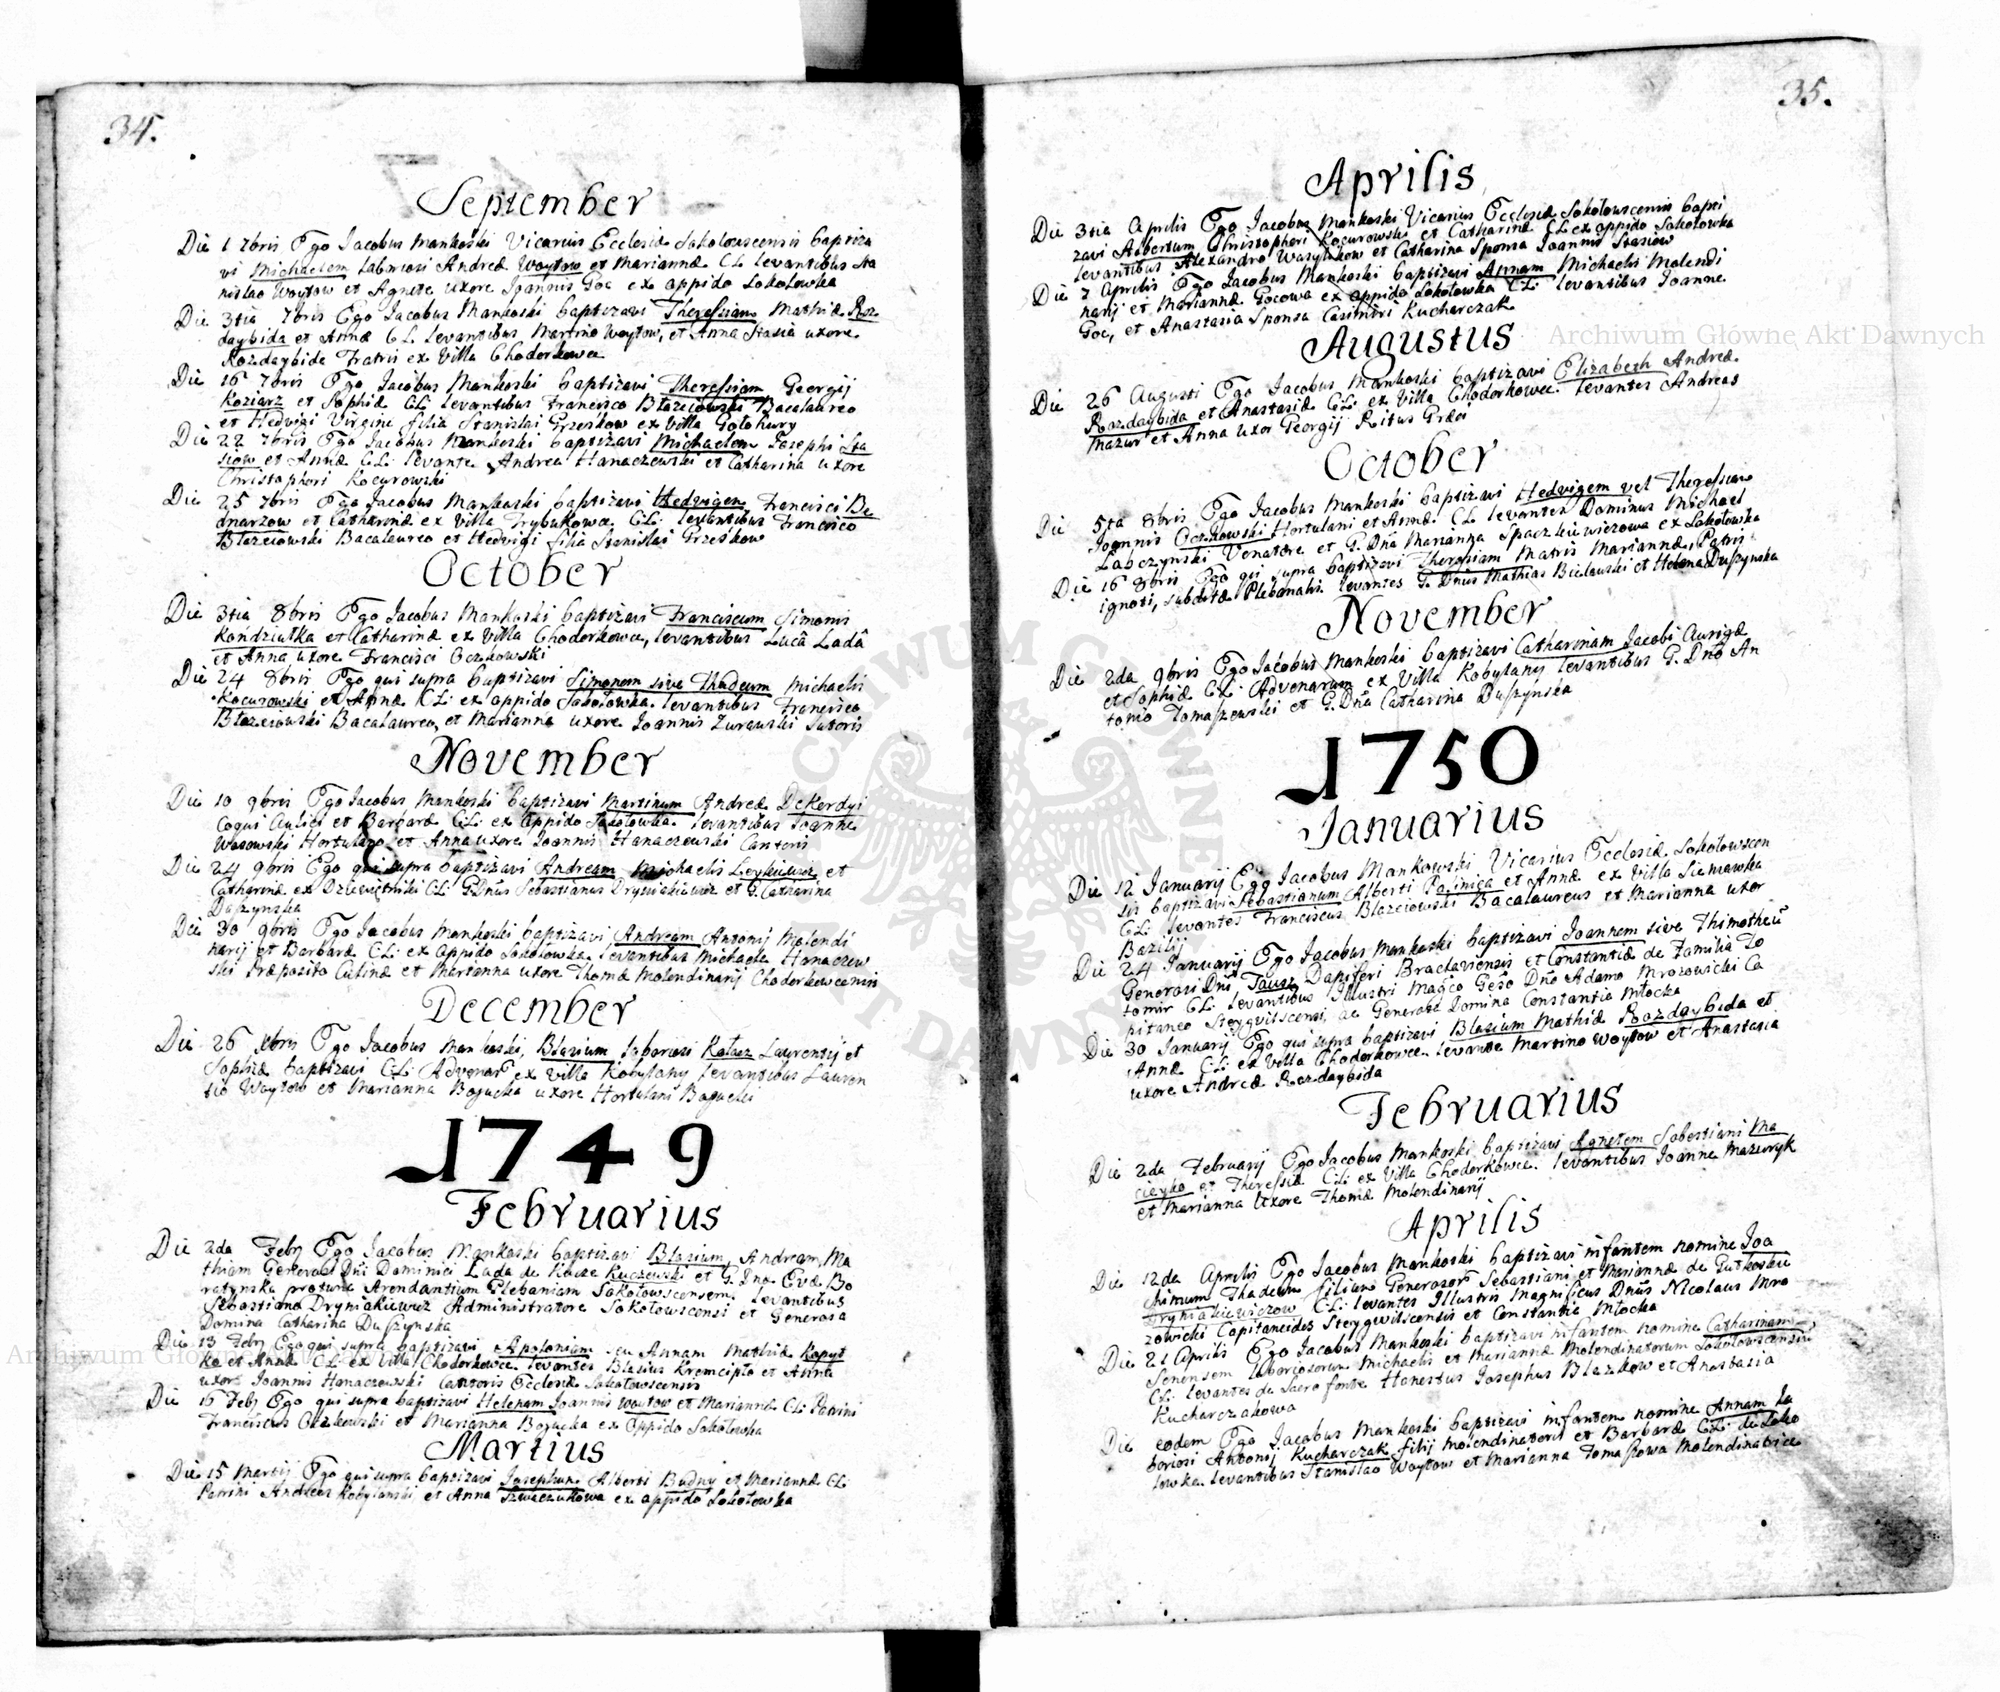 34.
September
Die 1 7bris Ego Jacobus Mankoski Vicarius Ecclesiæ Sokolowscensis baptiza
vi Michaelem Laboriosi Andreæ Woytow et Mariannæ CL levantibus Sta
nislao Woytow et Agnete uxore Joannis Goc ex oppido Sokolowka
Die 3tia 7bris Ego Jacobus Mankoski baptizavi Theressiam Mathiæ Roz
daybida et Annæ CL. Levantibus Martino Woytow, et Anna Stasia uxore
Rozdaybida Fratris ex Villa Chodorkowce
Die 16 7bris Ego Jacobus Mankoski baptizavi Theressiam Georgij
Koziarz et Sophiæ CL: levantibus Francisco Błazeiowski Bacalaureo
et Hedvigi Virgine filia Stanislai Grzeskow ex Villa Gołohury
Die 22 7bris Ego Jacobus Mankoski baptizavi Michaelem Josephi Sta
siow et Annæ CL: levante Andrea Hanaczewski et Catharina uxore
Christophori Kocurowski
Die 25 7bris Ego Jacobus Mankoski baptizavi Hedvigem Francisci Be
dnarzow et Catharinæ ex Villa Trybukowce CL: levantibus Francisco
Błazeiowski Bacalaureo et Hedvigi filia Stanislai Grzeskow
October
Die 3tia 8bris Ego Jacobus Mankoski baptizavi Franciscum Simonis
Kondziułka et Catharinæ ex Villa Chodorkowce, levantibus Lucâ Ladâ
et Anna uxore Francisci Oczkowski
Die 24 8bris Ego qui supra baptizavi Simonem sive Thadeum Michaelis
Kocurowski et Annæ CL: ex oppido Sokołowka. levantibus Francisco
Błazeiowski Bacalaureo, et Marianna uxore Joannis Zurawski Sutoris
November
Die 10 9bris Ego Jacobus Mankoski baptizavi Martinum Andreæ Dekerdyi
Coqui Aulici et Barbaræ CL: ex oppido Sokołowka. levantibus Joanne
Wąsowski Hortulano et Anna uxore Joannis Hanaczewski Cantoris
Die 24 9bris Ego qui supra baptizavi Andream Michaelis Leykiewicz et
Catharinæ ex CL: GDnus Sebastianus Dryniakiewicz et G. Catharina
Duszynska
Die 30 9bris Ego Jacobus Mankoski baptizavi Andream Antonij Molendi
narij et Barbaræ CL: ex oppido Sokołowka. levantibus Michaele Hanaczew
ski Præposito et Marianna uxore Thomæ Molendinarij Chodorkowcensis
December
Die 26 Xbris Ego Jacobus Mankoski, Blasium Laboriosi Kałasz Laurentij et
Sophiæ baptizavi CL: Advenar ex Villa Kobylany levantibus Lauren
tio Woytow et Marianna Bogucka uxore Hortulani Bogucki
1749
Februarius
Die 2da Febr Ego Jacobus Mankoski baptizavi Blasium, Andream, Ma
thiam Generosi Dni Dominici Lada de Kucze Kuczewski et G. Dna Evæ Bo
ratynska protunc Arendantium Plebaniam Sokołowscensem. levantibus
Sebastiano Dryniakiewicz Administratore Sokołowscensi et Generosa
Domina Catharina Duszynska
Die 13 Febr Ego qui supra baptizavi Apoloniam seu Annam Mathiæ Kopyt
ko et Annæ CL ex Villa Chodorkowce levantes Blasius Kremcipło et Anna
uxor Joannis Hanaczewski Cantoris Ecclesiæ Sokołowscensis
Die 16 Febr Ego qui supra baptizavi Helenam Joannis Woytow et Mariannæ CL: Patrini
Franciscus Oczkowski et Marianna Bogucka ex Oppido Sokołowka
Martius
Die 15 Martij Ego qui supra baptizavi Josephum Alberti Budny et Mariannæ CL:
Patrini Andreas Kobylanski et Anna ex oppido Sokołowka
35.
Aprilis
Die 3tia Aprilis Ego Jacobus Mankoski Vicarius Ecclesiæ Sokołowscensis bapti
zavi Albertum Christophori Kocurowski et Catharinæ CL ex oppido Sokołowka
levantibus Alexandro Wasylkow et Catharina Sponsa Joannis Stasiow
Die 7 Aprilis Ego Jacobus Mankoski baptizavi Annam Michaelis Molendi
narij et Mariannæ Gocowa ex oppido Sokołowka CL: levantibus Joanne
Goc, et Anastasia Sponsa Casimiri Kucharczak
Augustus
Die 26 Augusti Ego Jacobus Mankoski baptizavi Elizabeth Andreæ
Rozdaybida et Anastasiæ CL: ex Villa Chodorkowce. levantes Andreas
Mazur et Anna uxor Georgij Ritus Græci
October
Die 5ta 8bris Ego Jacobus Mankoski baptizavi Hedvigem vel Theressiam
Joannis Oczkowski Hortulani et Annæ CL levantes Dominus Michael
Labczynski Venatore et G. Dña Marianna Spaczkiewiczowa ex Sokołowka
Die 16 8bris Ego qui supra baptizavi Theresiam Matris Mariannæ, Patris
ignoti, subditæ Plebanalis levantes G. Dnus Mathias Bielawski et Helena Duszynska
November
Die 2da 9bris Ego Jacobus Mankoski baptizavi Catharinam Jacobi Aurigæ
et Sophiæ CL: Advenarum ex Villa Kobylany levantibus G. Dno An
tonio Tomaszewski et G. Dña Catharina Duszynska
1750
Januarius
Die 12 Januarij Ego Jacobus Mankowski Vicarius Ecclesiæ Sokołowscen
sis baptizavi Sebastianum Alberti Pasinica et Annæ ex Villa Sieniawka
CL: levantes Franciscus Błazeiowski Bacalaureus et Marianna uxor
Bazilij
Die 24 Januarij Ego Jacobus Mankoski baptizavi Joannem sive Thimotheũ
Generosi Dni Tausz Dapiferi Braclaviensis et Constantiæ de Familia Po
tomir CL: levantibus Illustri Magco Geso Dño Adamo Mrozowicki Ca
pitaneo Stegvilscensi, ac Generosa Domina Constantia Młocka
Die 30 Januarij Ego qui supra baptizavi Blasium Mathiæ Rozdaybida et
Annæ CL: ex Villa Chodorkowce. levante Martino Woytow et Anastasia
uxore Andreæ Rozdaybida
Februarius
Die 2da Februarij Ego Jacobus Mankoski baptizavi Agnetem Sebestiani Ma
cieyko et Theressiæ CL: ex Villa Chodorkowce. levantibus Joanne Mazuryk
et Marianna Uxore Thomæ Molendinarij
Aprilis
Die 12da Aprilis Ego Jacobus Mankoski baptizavi infantem nomine Joa
chimum Thadeum filium Generosor Sebastiani et Mariannæ de Gutkoskie
Dryniakiewiczow CL: levantes Illustris Magnificus Dnus Nicolaus Mro
zowicki Capitaneides Stegvilscensis et Constantia Młocka
Die 21 Aprilis Ego Jacobus Mankoski baptizavi infantem nomine Catharinam
Senensem laboriosorum Michaelis et Mariannæ Molendinatorum Sokołowscensiu
CL: levantes de Sacro fonte Honestus Josephus Błazkow et Anastasia
Kucharczakowa
Die eodem Ego Jacobus Mankoski baptizavi infantem nomine Annam La
boriosi Antonij Kucharczak filij molendinatoris et Barbaræ CL: de Soko
łowka. levantibus Stanislao Woytow et Marianna Tomaszowa Molendinatrice
Archiwum Główne Akt Dawnych